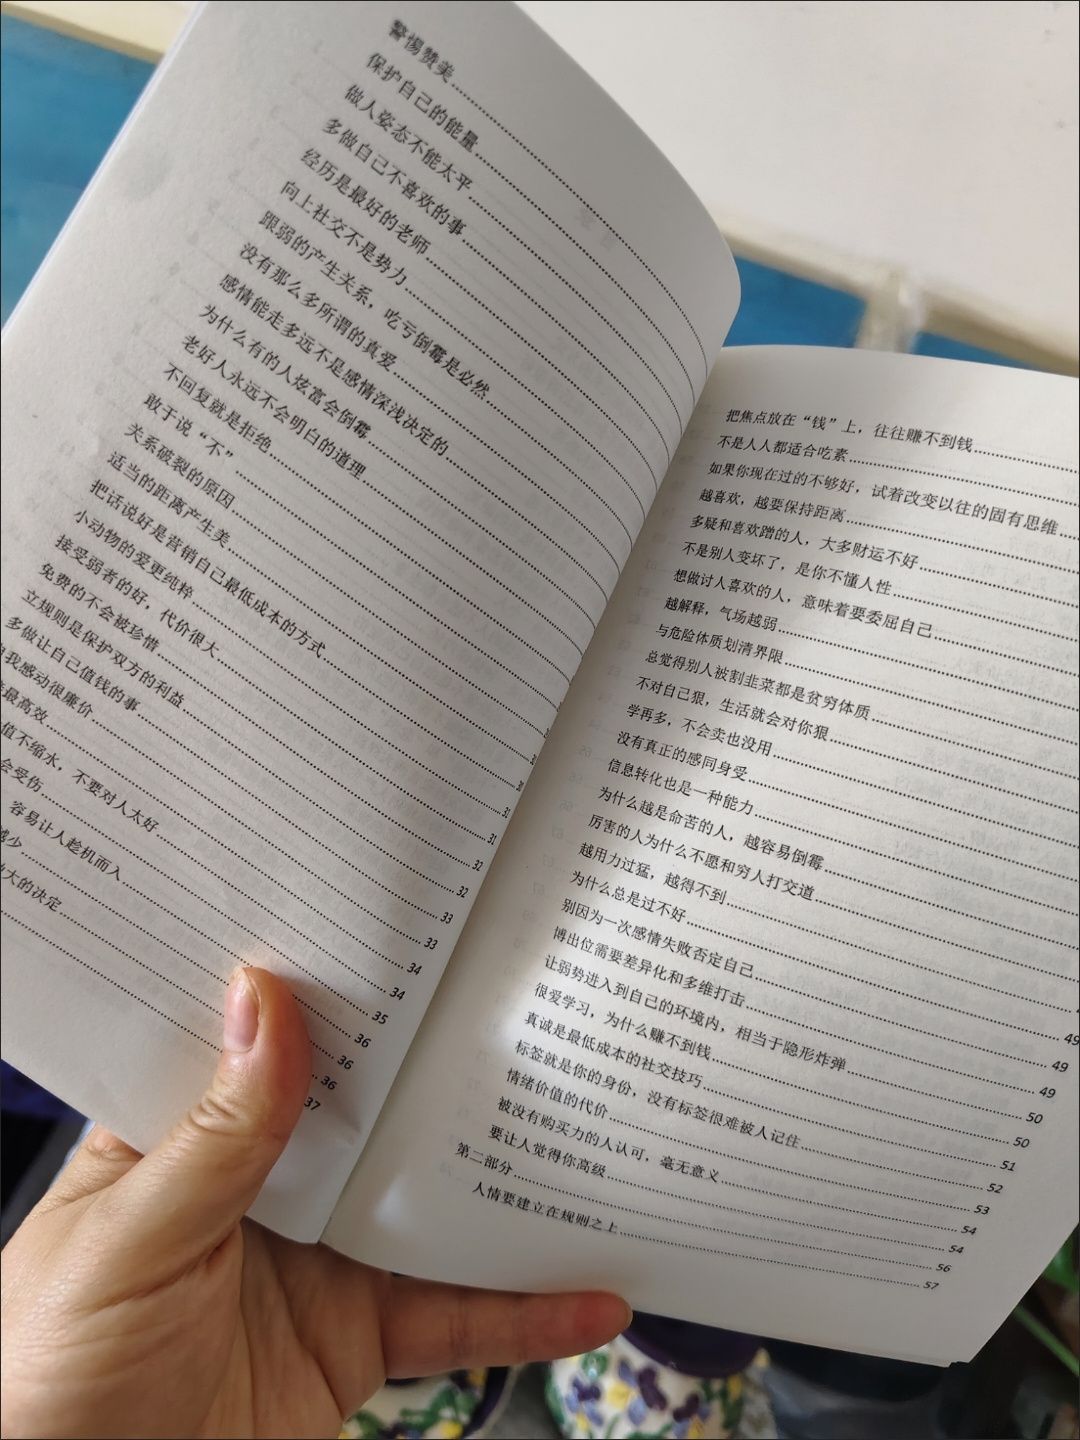 警惕赞美
保护自己的能量
做人姿态不能太平
多做自己不喜欢的事
经历是最好的老师
向上社交不是势力
跟弱的产生关系，吃亏倒霉是必然
没有那么多所谓的真爱
感情能走多远不是感情深浅决定的
为什么有的人炫富会倒霉
老好人永远不会明白的道理
不回复就是拒绝
敢于说“不”
关系破裂的原因
适当的距离产生美
把话说好是营销自己最低成本的方式
小动物的爱更纯粹 31
接受弱者的好，代价很大 31
免费的不会被珍惜 32
立规则是保护双方的利益 32
多做让自己值钱的事 33
自我感动很廉价 33
最高效 34
值不缩水，不要对人太好 34
会受伤 35
容易让人趁机而入 36
越少 36
大的决定 36
37
把焦点放在“钱”上，往往赚不到钱
不是人人都适合吃素
如果你现在过的不够好，试着改变以往的固有思维
越喜欢，越要保持距离
多疑和喜欢蹭的人，大多财运不好
不是别人变坏了，是你不懂人性
想做讨人喜欢的人，意味着要委屈自己
越解释，气场越弱
与危险体质划清界限
总觉得别人被割韭菜都是贫穷体质
不对自己狠，生活就会对你狠
学再多，不会卖也没用
没有真正的感同身受
信息转化也是一种能力
为什么越是命苦的人，越容易倒霉
厉害的人为什么不愿和穷人打交道
越用力过猛，越得不到
为什么总是过不好
别因为一次感情失败否定自己 49
博出位需要差异化和多维打击 49
让弱势进入到自己的环境内，相当于隐形炸弹 49
很爱学习，为什么赚不到钱 50
真诚是最低成本的社交技巧 50
标签就是你的身份，没有标签很难被人记住 51
情绪价值的代价 52
被没有购买力的人认可，毫无意义 53
要让人觉得你高级 54
第二部分 56
人情要建立在规则之上 57